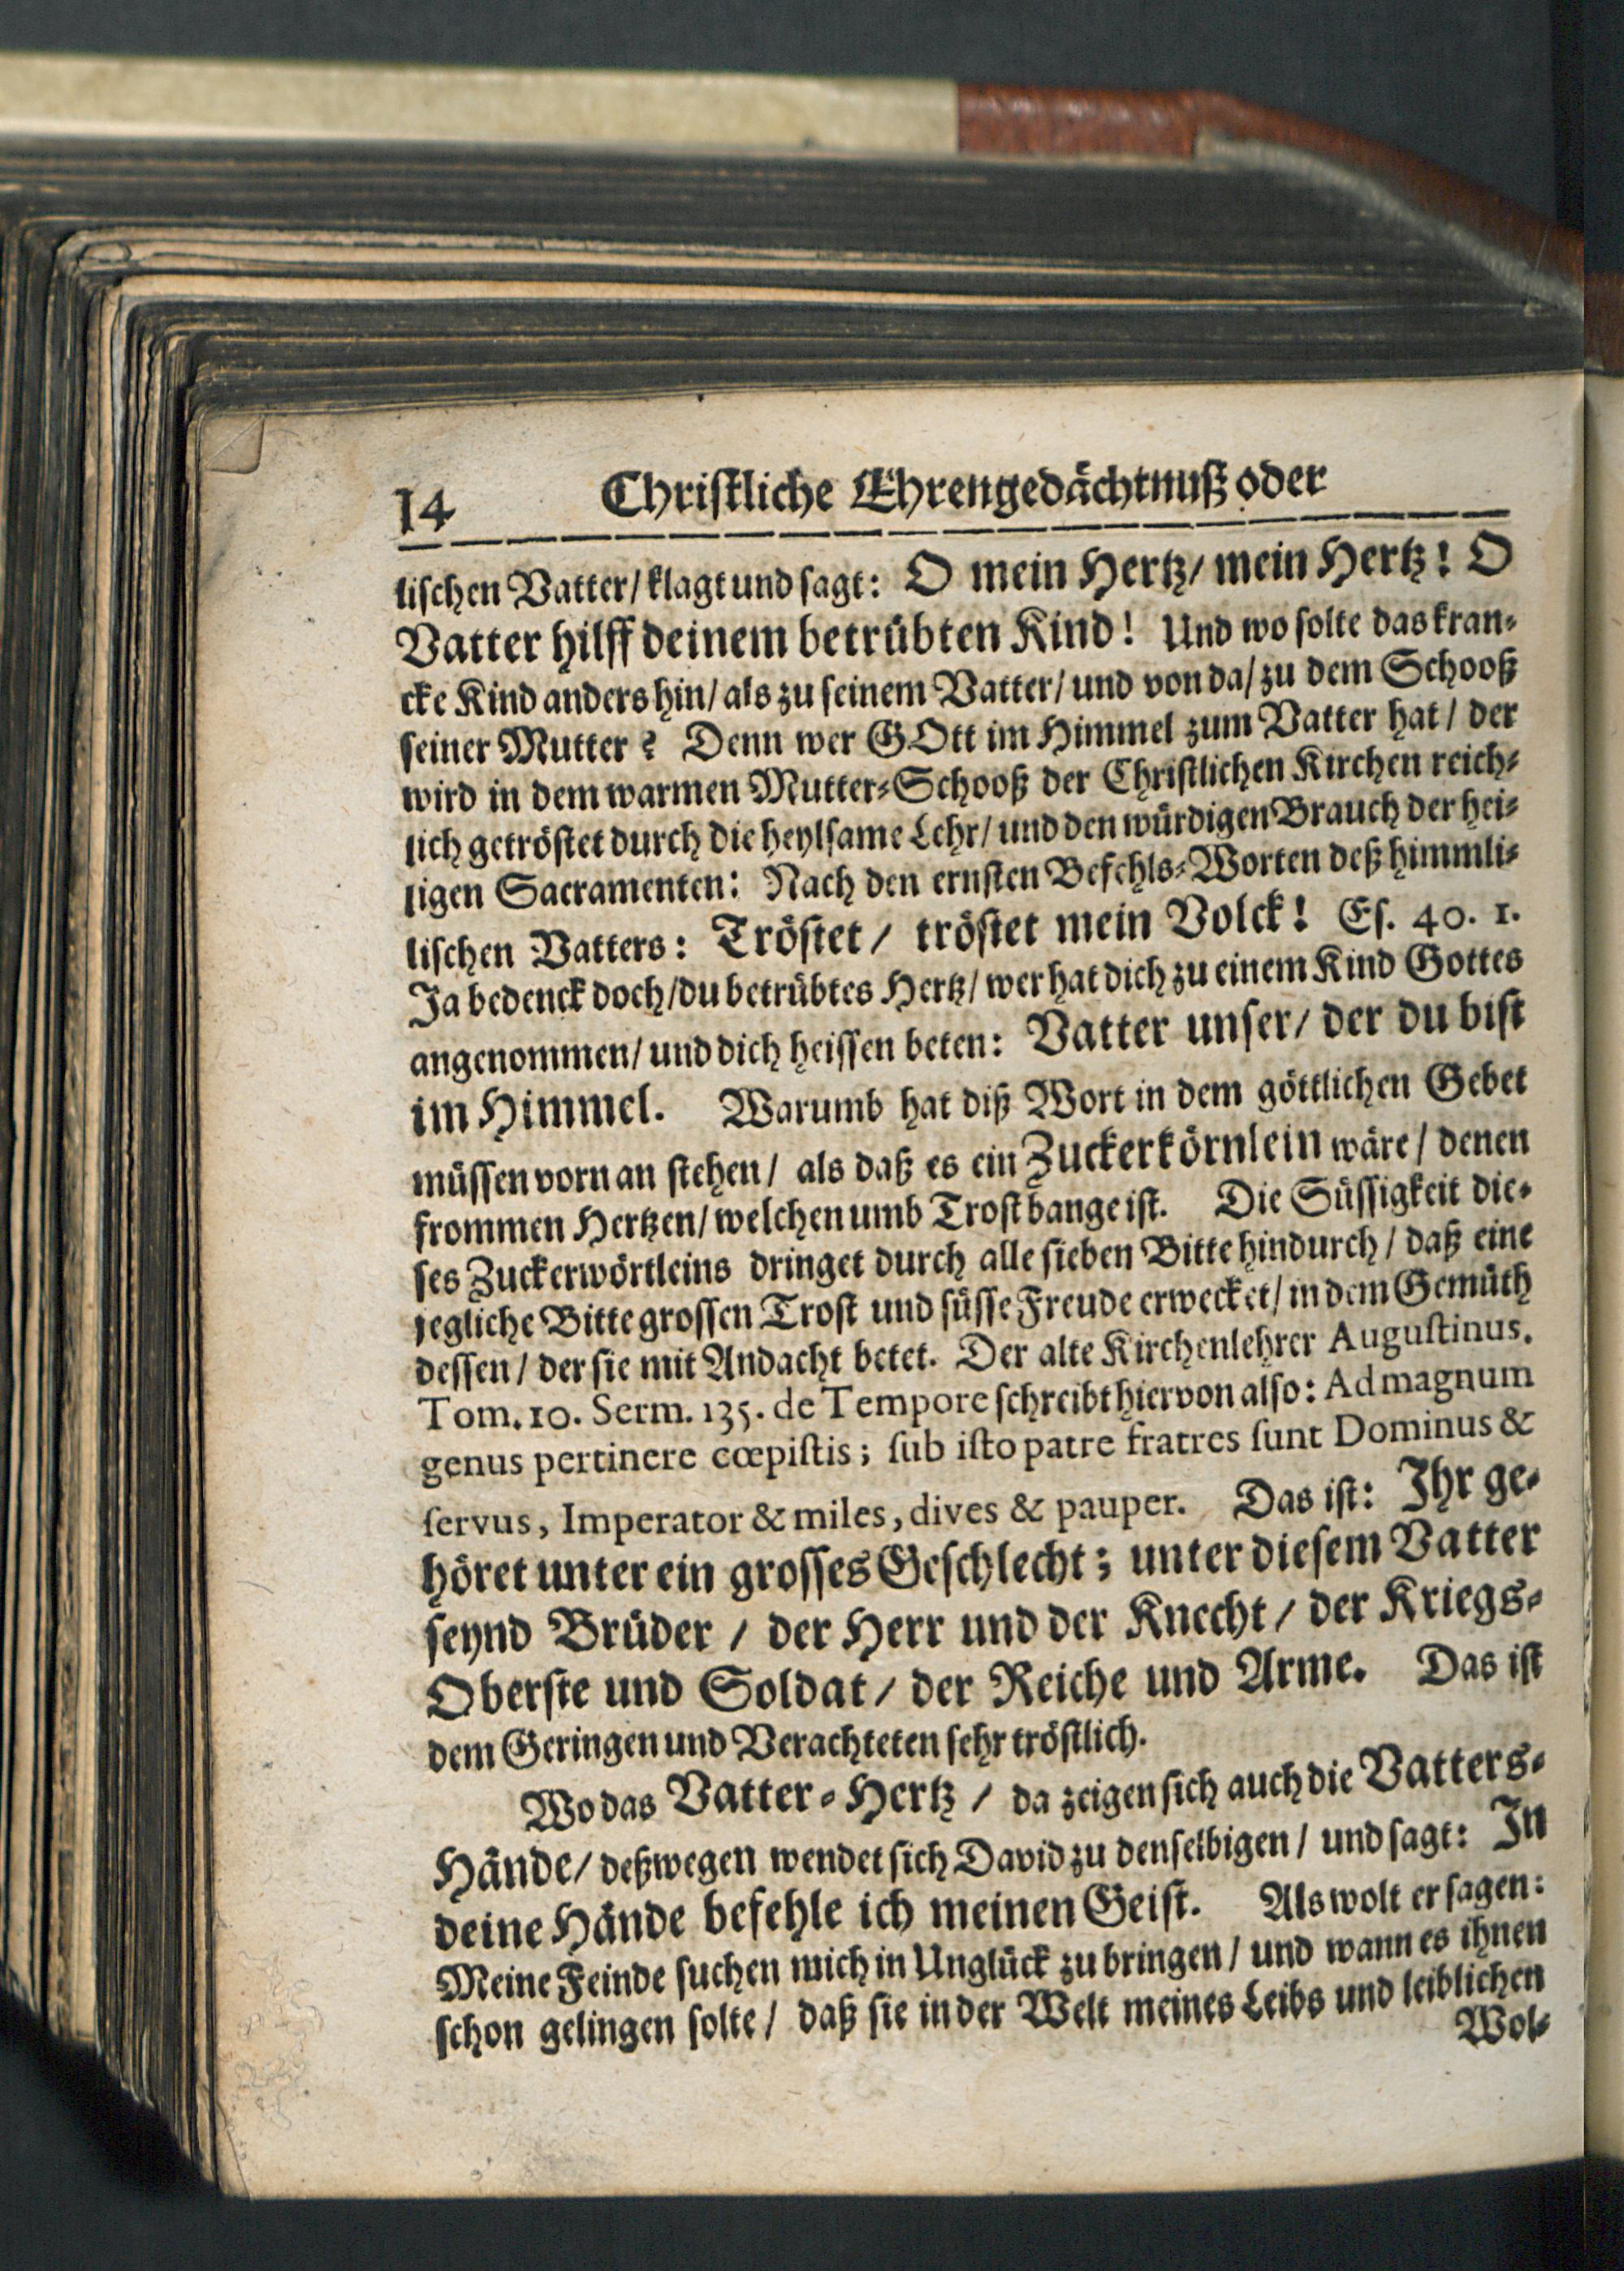 14 Christliche Ehrengedächtnuß oder
lischen Vatter/ klagt und sagt: O mein Hertz/ mein Hertz! O
Vatter hilff deinem betrübten Kind! Und wo solte das kran-
cke Kind anders hin/ als zu seinem Vatter/ und von da/ zu dem Schooß
seiner Mutter? Denn wer GOtt im Himmel zum Vatter hat/ der
wird in dem warmen Mutter-Schooß der Christlichen Kirchen reich-
lich getröstet durch die heylsame Lehr/ und den würdigen Brauch der hei-
ligen Sacramenten: Nach den ernsten Befehls-Worten deß himmli-
lischen Vatters: Tröstet/ tröstet mein Volck! Es. 40. 1.
Ja bedenck doch/ du betrübtes Hertz/ wer hat dich zu einem Kind Gottes
angenommen/ und dich heissen beten: Vatter unser/ der du bist
im Himmel. Warumb hat diß Wort in dem göttlichen Gebet
müssen vorn an stehen/ als daß es ein Zuckerkörnlein wäre/ denen
frommen Hertzen/ welchen umb Trost bange ist. Die Süssigkeit die-
ses Zuckerwörtleins dringet durch alle sieben Bitte hindurch/ daß eine
jegliche Bitte grossen Trost und süsse Freude erwecket/ in dem Gemüth
dessen/ der sie mit Andacht betet. Der alte Kirchenlehrer Augustinus.
Tom. 10. Serm. 135. de Tempore schreibt hiervon also: Ad magnum
genus pertinere cœpistis; sub isto patre fratres sunt Dominus &
servus, Imperator & miles, dives & pauper. Das ist: Ihr ge-
höret unter ein grosses Geschlecht; unter diesem Vatter
seynd Brüder/ der Herr und der Knecht/ der Kriegs-
Oberste und Soldat/ der Reiche und Arme. Das ist
dem Geringen und Verachteten sehr tröstlich.
Wo das Vatter-Hertz/ da zeigen sich auch die Vatters-
Hände/ deßwegen wendet sich David zu denselbigen/ und sagt: In
deine Hände befehle ich meinen Geist. Als wolt er sagen:
Meine Feinde suchen mich in Unglück zu bringen/ und wann es ihnen
schon gelingen solte/ daß sie in der Welt meines Leibs und leiblichen
Wol-